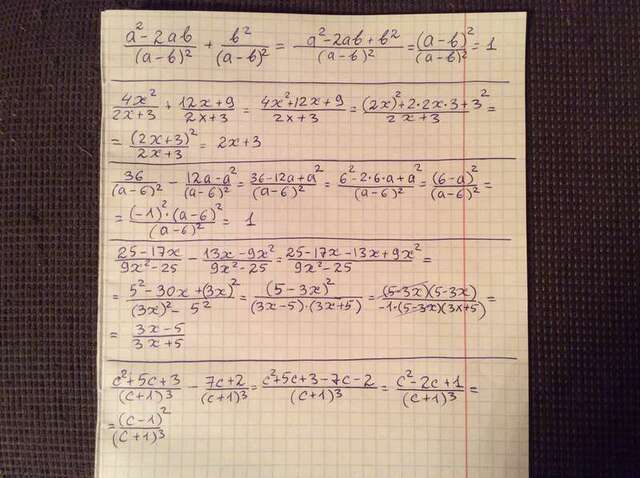 (a²-2ab)/(a-b)² + b²/(a-b)² = (a²-2ab+b²)/(a-b)² = (a-b)²/(a-b)² = 1
4x²/(2x+3) + (12x+9)/(2x+3) = (4x²+12x+9)/(2x+3) = ((2x)²+2·2x·3+3²)/(2x+3) =
= (2x+3)²/(2x+3) = 2x+3
36/(a-6)² - (12a-a²)/(a-6)² = (36-12a+a²)/(a-6)² = (6²-2·6·a+a²)/(a-6)² = (6-a)²/(a-6)² =
= (-1)²·(a-6)²/(a-6)² = 1
(25-17x)/(9x²-25) - (13x-9x²)/(9x²-25) = (25-17x-13x+9x²)/(9x²-25) =
= (5²-30x+(3x)²)/((3x)²-5²) = (5-3x)²/((3x-5)·(3x+5)) = (5-3x)(5-3x)/(-1·(5-3x)(3x+5)) =
= (3x-5)/(3x+5)
(c²+5c+3)/(c+1)³ - (7c+2)/(c+1)³ = (c²+5c+3-7c-2)/(c+1)³ = (c²-2c+1)/(c+1)³ =
= (c-1)²/(c+1)³